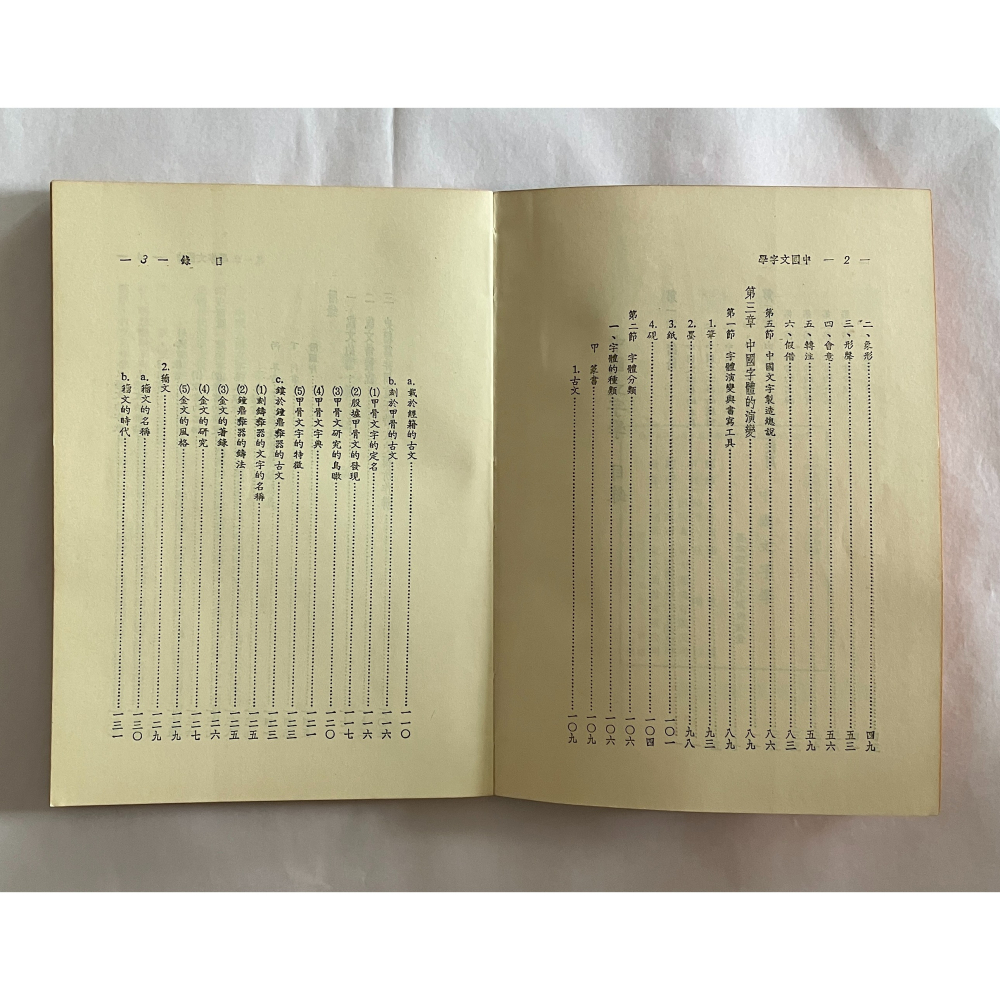 中國文字學 一 2 一
二、象形……四九
三、形聲……五三
四、會意……五六
五、轉注……五六
六、假借……八三
第五節 中國文字製造總說……八六
第三章 中國字體的演變……八九
第一節 字體演變與書寫工具……八九
1.筆……九三
2.墨……九八
3.紙……一〇一
4.硯……一〇四
第二節 字體分類……一〇六
一、字體的種類……一〇六
甲 篆書……一〇九
1.古文……一〇九
目錄 一 3 一
a.載於經籍的古文……一一〇
b.刻於甲骨的古文……一一六
(1)甲骨文字的定名……一一六
(2)殷墟甲骨文的發現……一一七
(3)甲骨文研究的鳥瞰……一二〇
(4)甲骨文字典……一二一
(5)甲骨文字的特徵……一二三
c.鏤於鐘鼎彝器的古文……一二三
(1)刻鑄彝器的文字的名稱……一二五
(2)鐘鼎彝器的鑄法……一二五
(3)金文的著錄……一二六
(4)金文的研究……一二七
(5)金文的風格……一二九
2.籀文……一二九
a.籀文的名稱……一三〇
b.籀文的時代……一三一